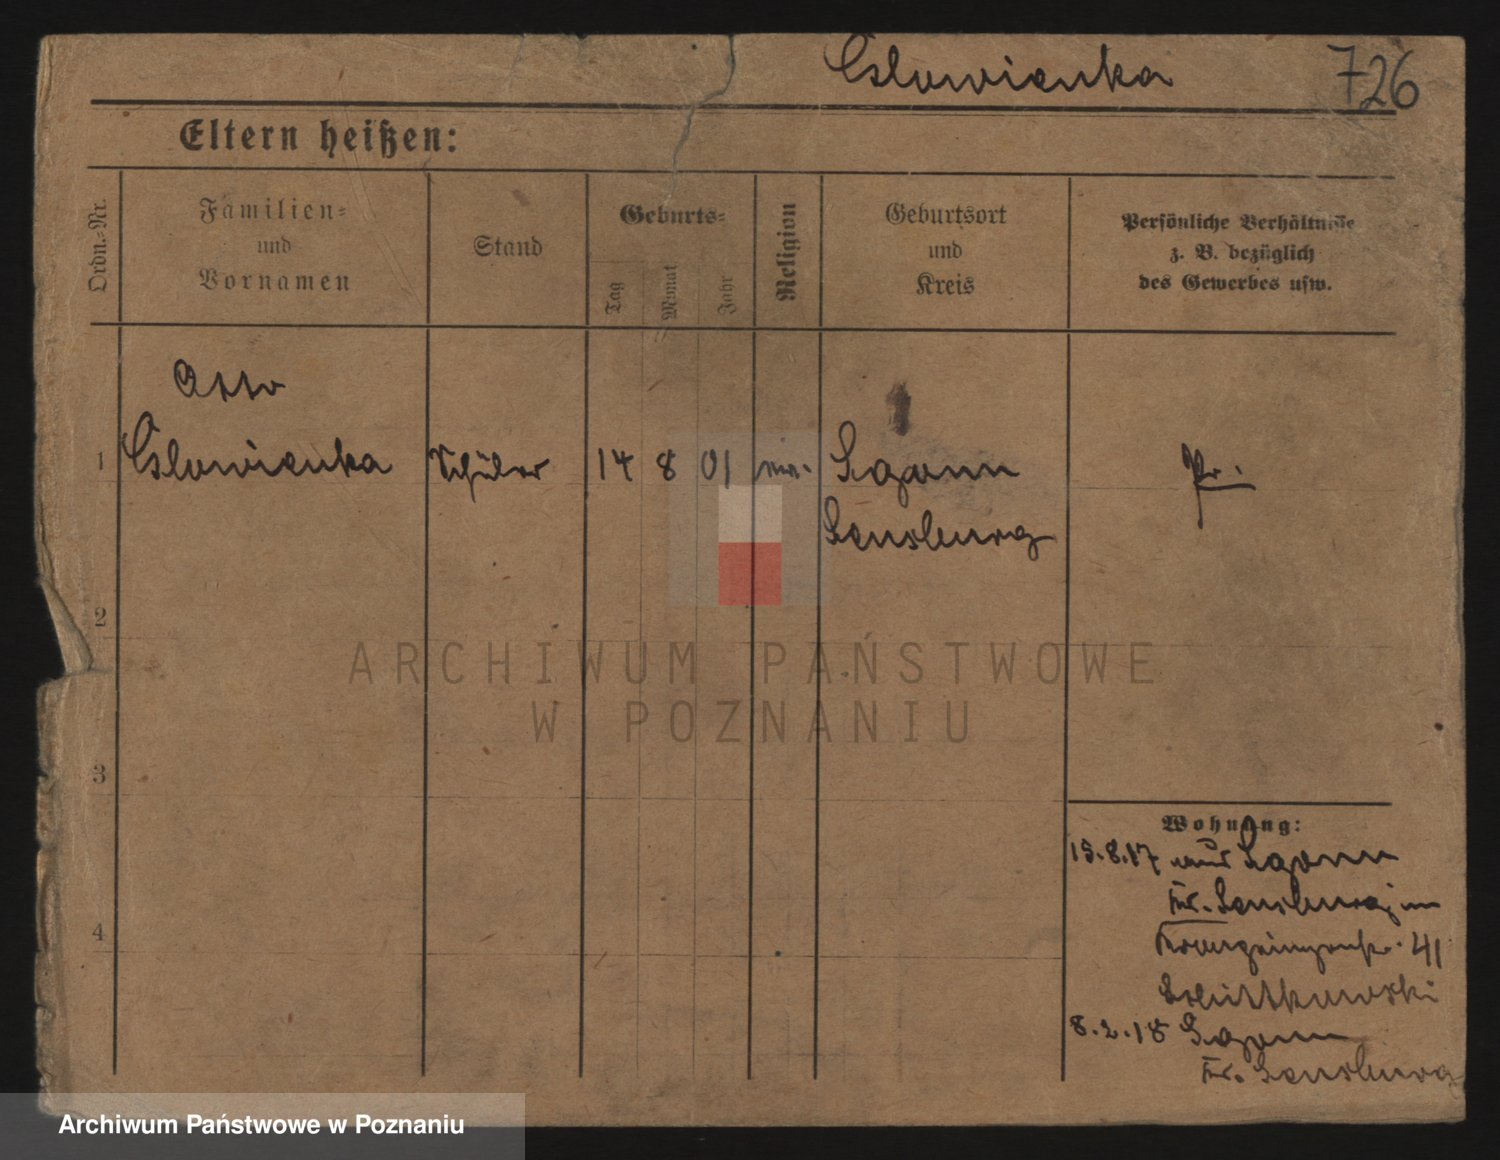 Czlowienka 726
Eltern heißen:
Ordn.-Nr.
Familien-
und
Vornamen
Stand
Geburts-
Tag
Monat
Jahr
Religion
Geburtsort
und
Kreis
Persönliche Verhältnisse
z. B. bezüglich
des Gewerbes usw.
Otto
1 Czlowienka Schüler 14 8 01 Sgonn Pr.
Sensburg
2
3
4
Wohnung:
15.8.17 aus Sgonn
Kr. Sensburg
41
8.2.18 Sgonn
Kr. Sensburg
ARCHIWUM PAŃSTWOWE
W POZNANIU
Archiwum Państwowe w Poznaniu